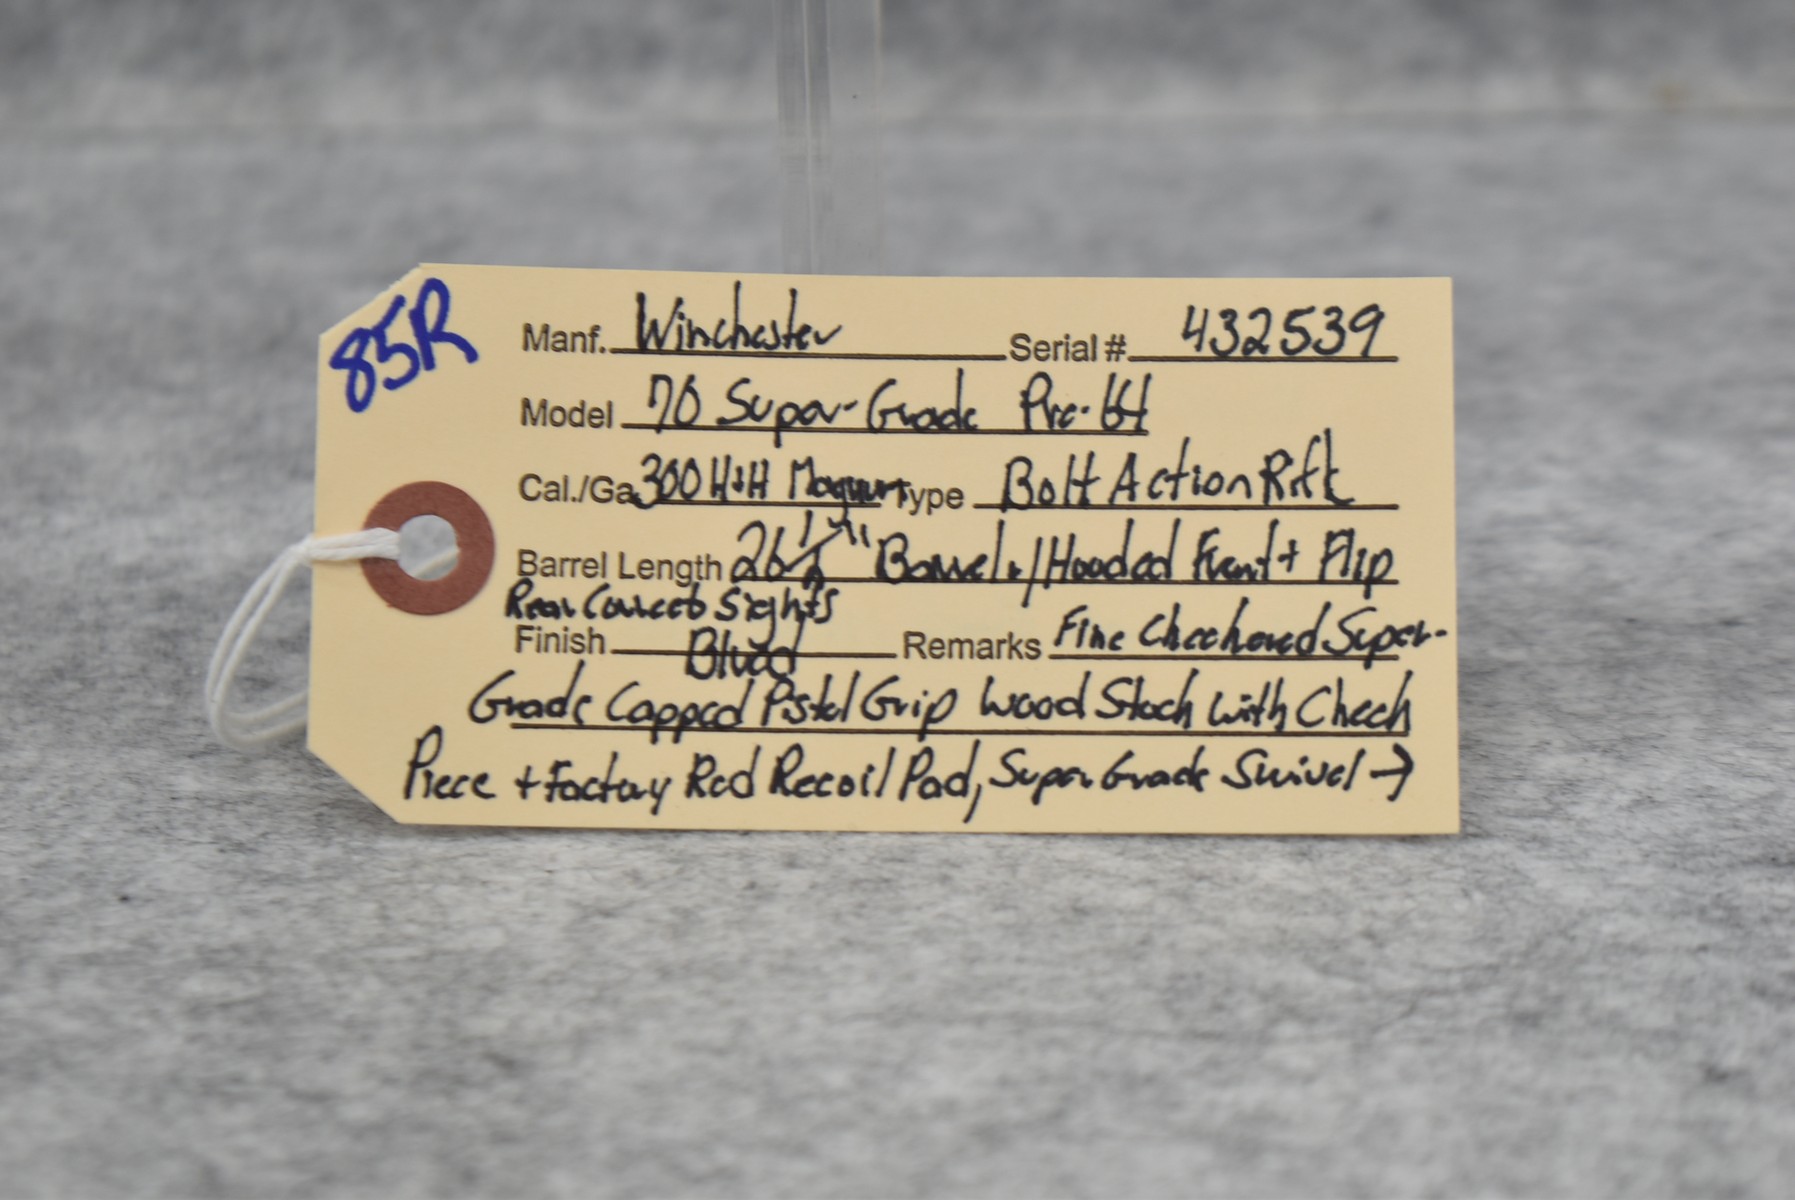 85R
Manf. Winchester Serial # 432539
Model 70 Super-Grade Pre-64
Cal./Ga. 300 H+H Magnum Type Bolt Action Rifle
Barrel Length 26 1/2" Barrel w/Hooded Front + Flip
Rear Correct Sights
Finish Blued Remarks Fine Checkered Super-
Grade Capped Pistol Grip Wood Stock with Cheek
Piece + Factory Red Recoil Pad, Super Grade Swivel →